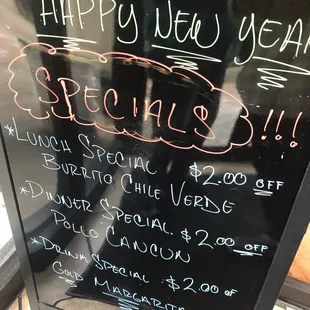 HAPPY NEW YEA
SPECIALS!!!
*LUNCH SPECIAL $2.00 OFF
BURRITO CHILE VERDE
*DINNER SPECIAL. $2.00 OFF
POLLO CANCUN
*DRINK SPECIAL . $2.00 OF
GOLD MARGARITA